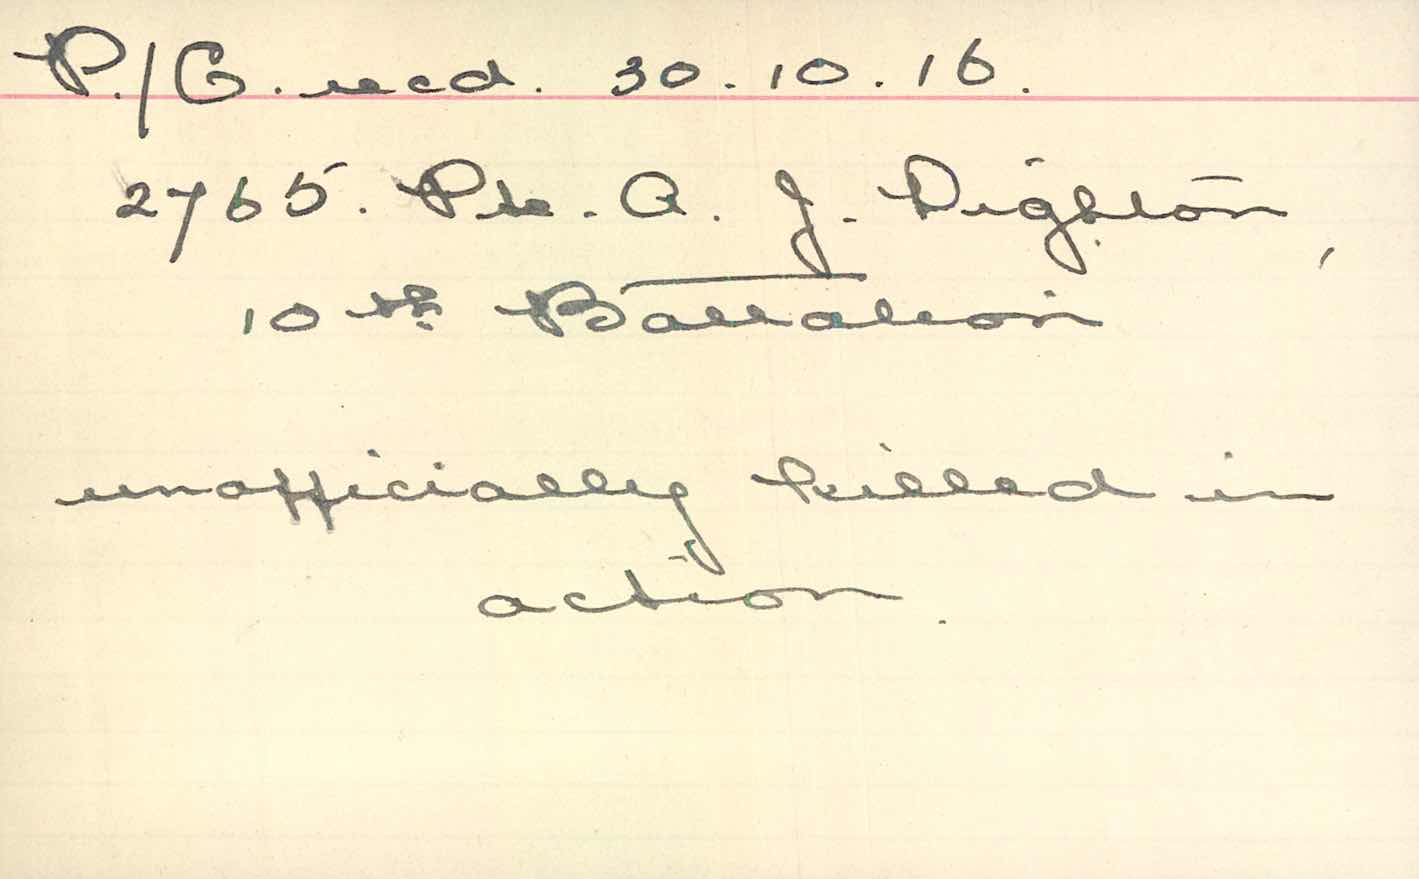 P./C. recd. 30.10.16.
2765. Pte. A. J. Dighton,
10th Battalion
unofficially killed in
action.